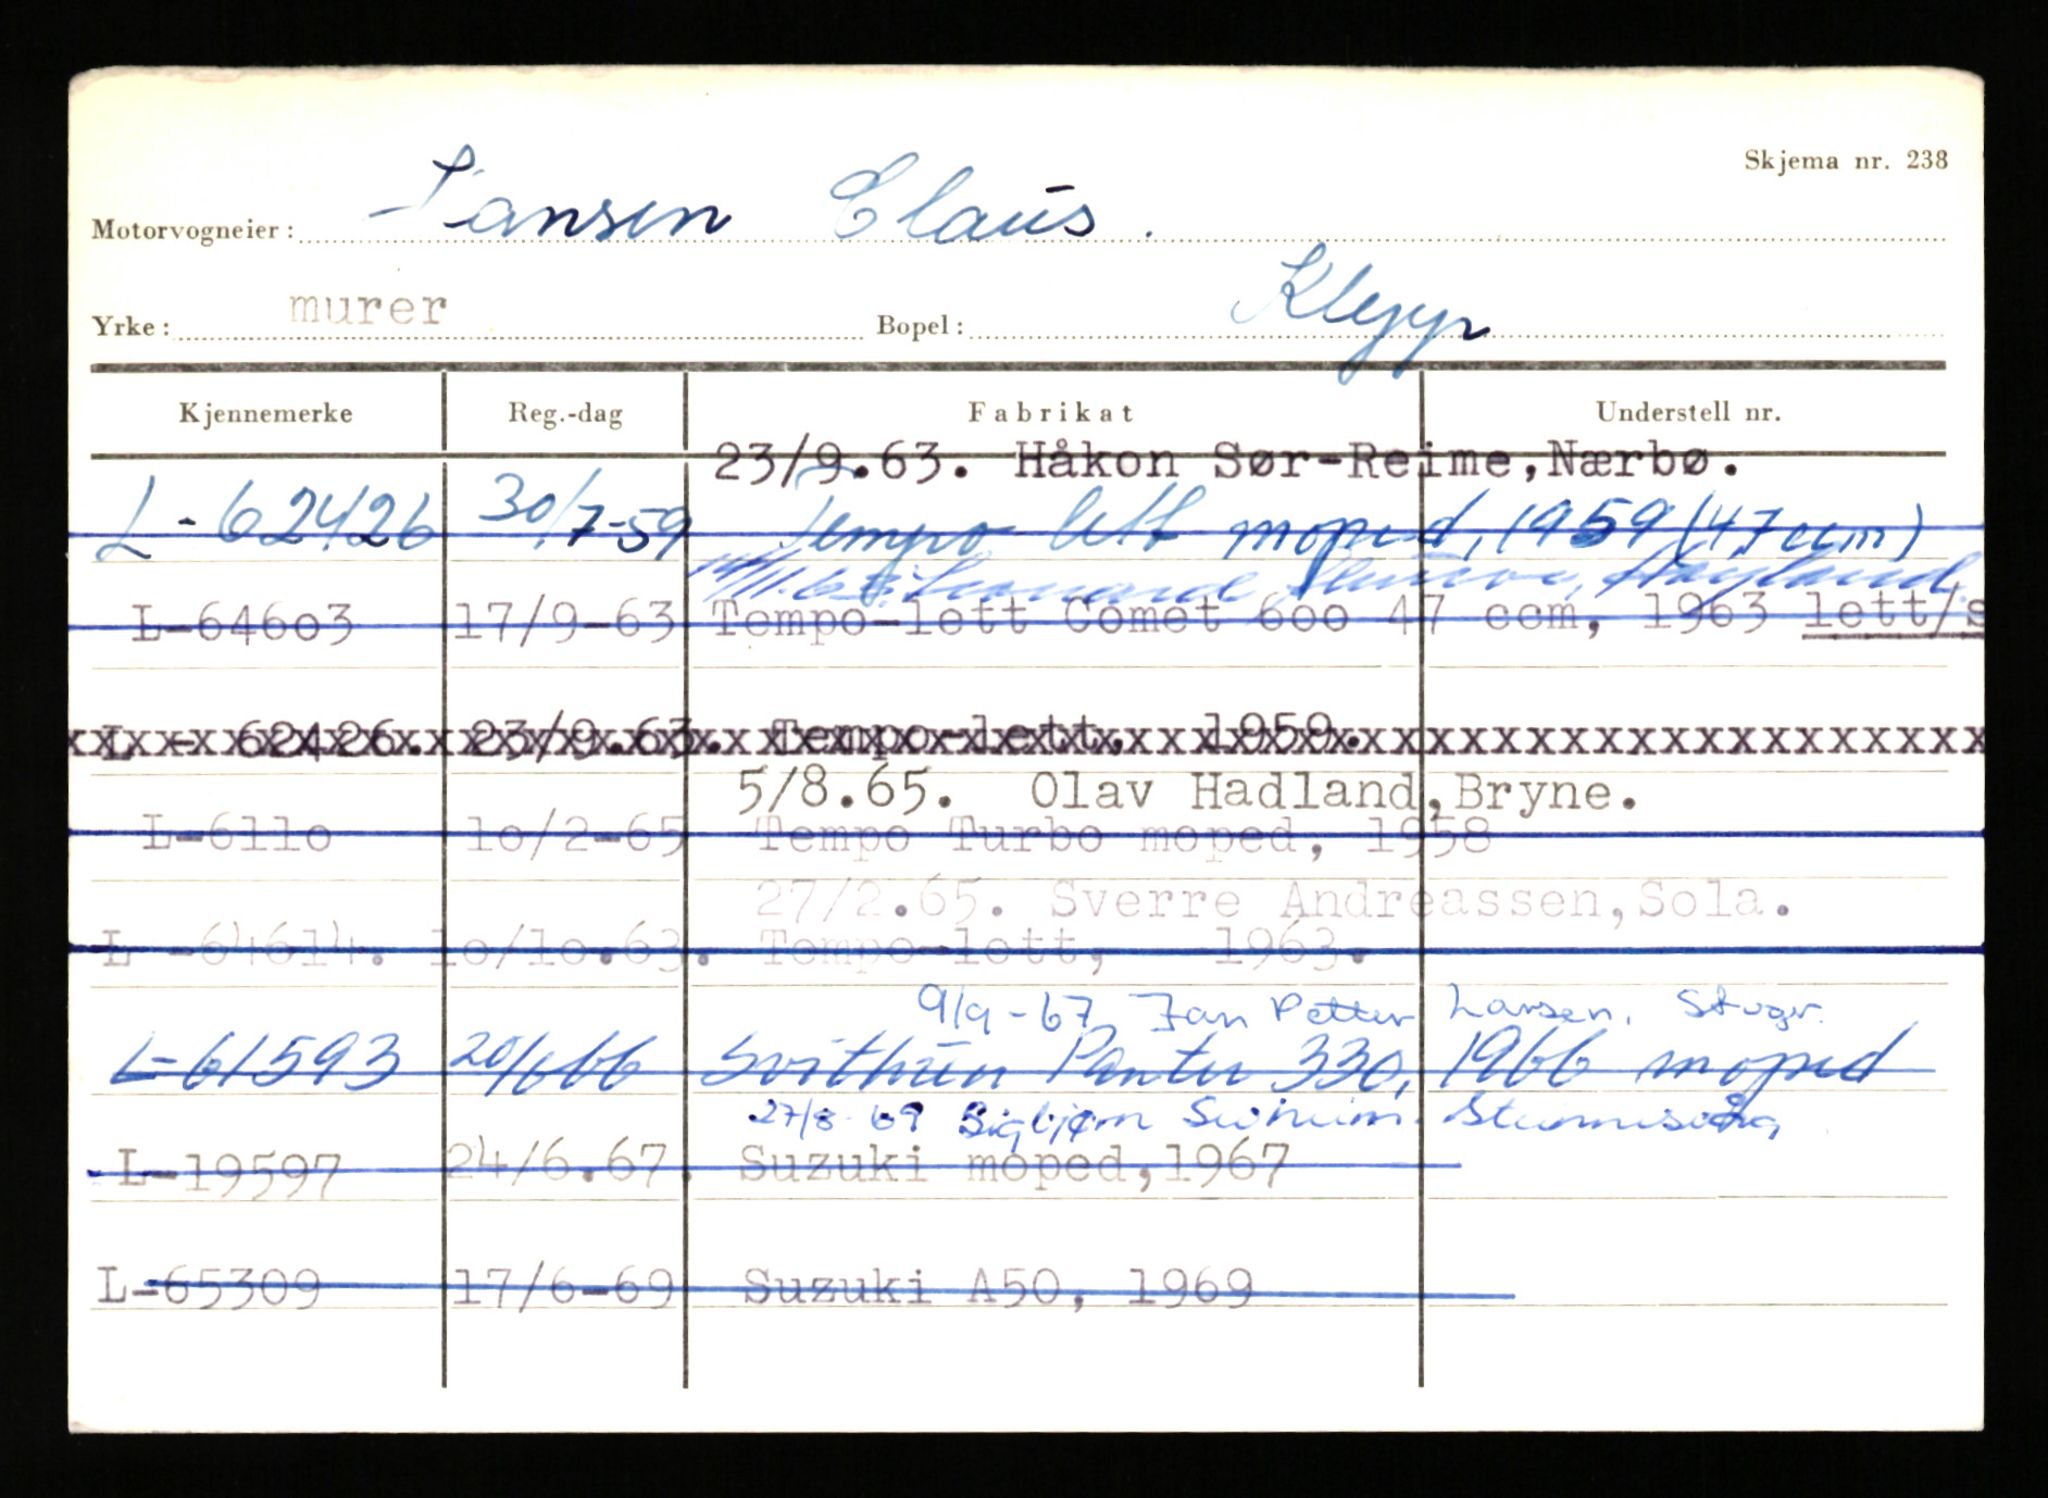 Skjema nr. 238
Motorvogneier: Jansen Claus.
Yrke: murer Bopel: Klepp
Kjennemerke Reg.-dag Fabrikat Understell nr.
23/9.63. Håkon Sør-Reime,Nærbø.
L-62426 30/7-59 Tempo lett moped, 1959 (47 ccm)
L-64603 17/9-63 Tempo-lett Comet 600 47 ccm, 1963 lett/s
L - 62426. 23/9.63. Tempo-lett, 1959.
5/8.65. Olav Hadland,Bryne.
L-6110 10/2-65 Tempo Turbo moped, 1958
27/2.65. Sverre Andreassen,Sola.
L -64614. 10/10.63. Tempo-lett, 1963.
9/9-67 Jan Petter Larsen, Stvgr.
L-61593 20/6 66 Svithun Panter 330, 1966 moped
27/8-69 Sigbjørn
L-19597 24/6.67. Suzuki moped,1967
L-65309 17/6-69 Suzuki A50, 1969